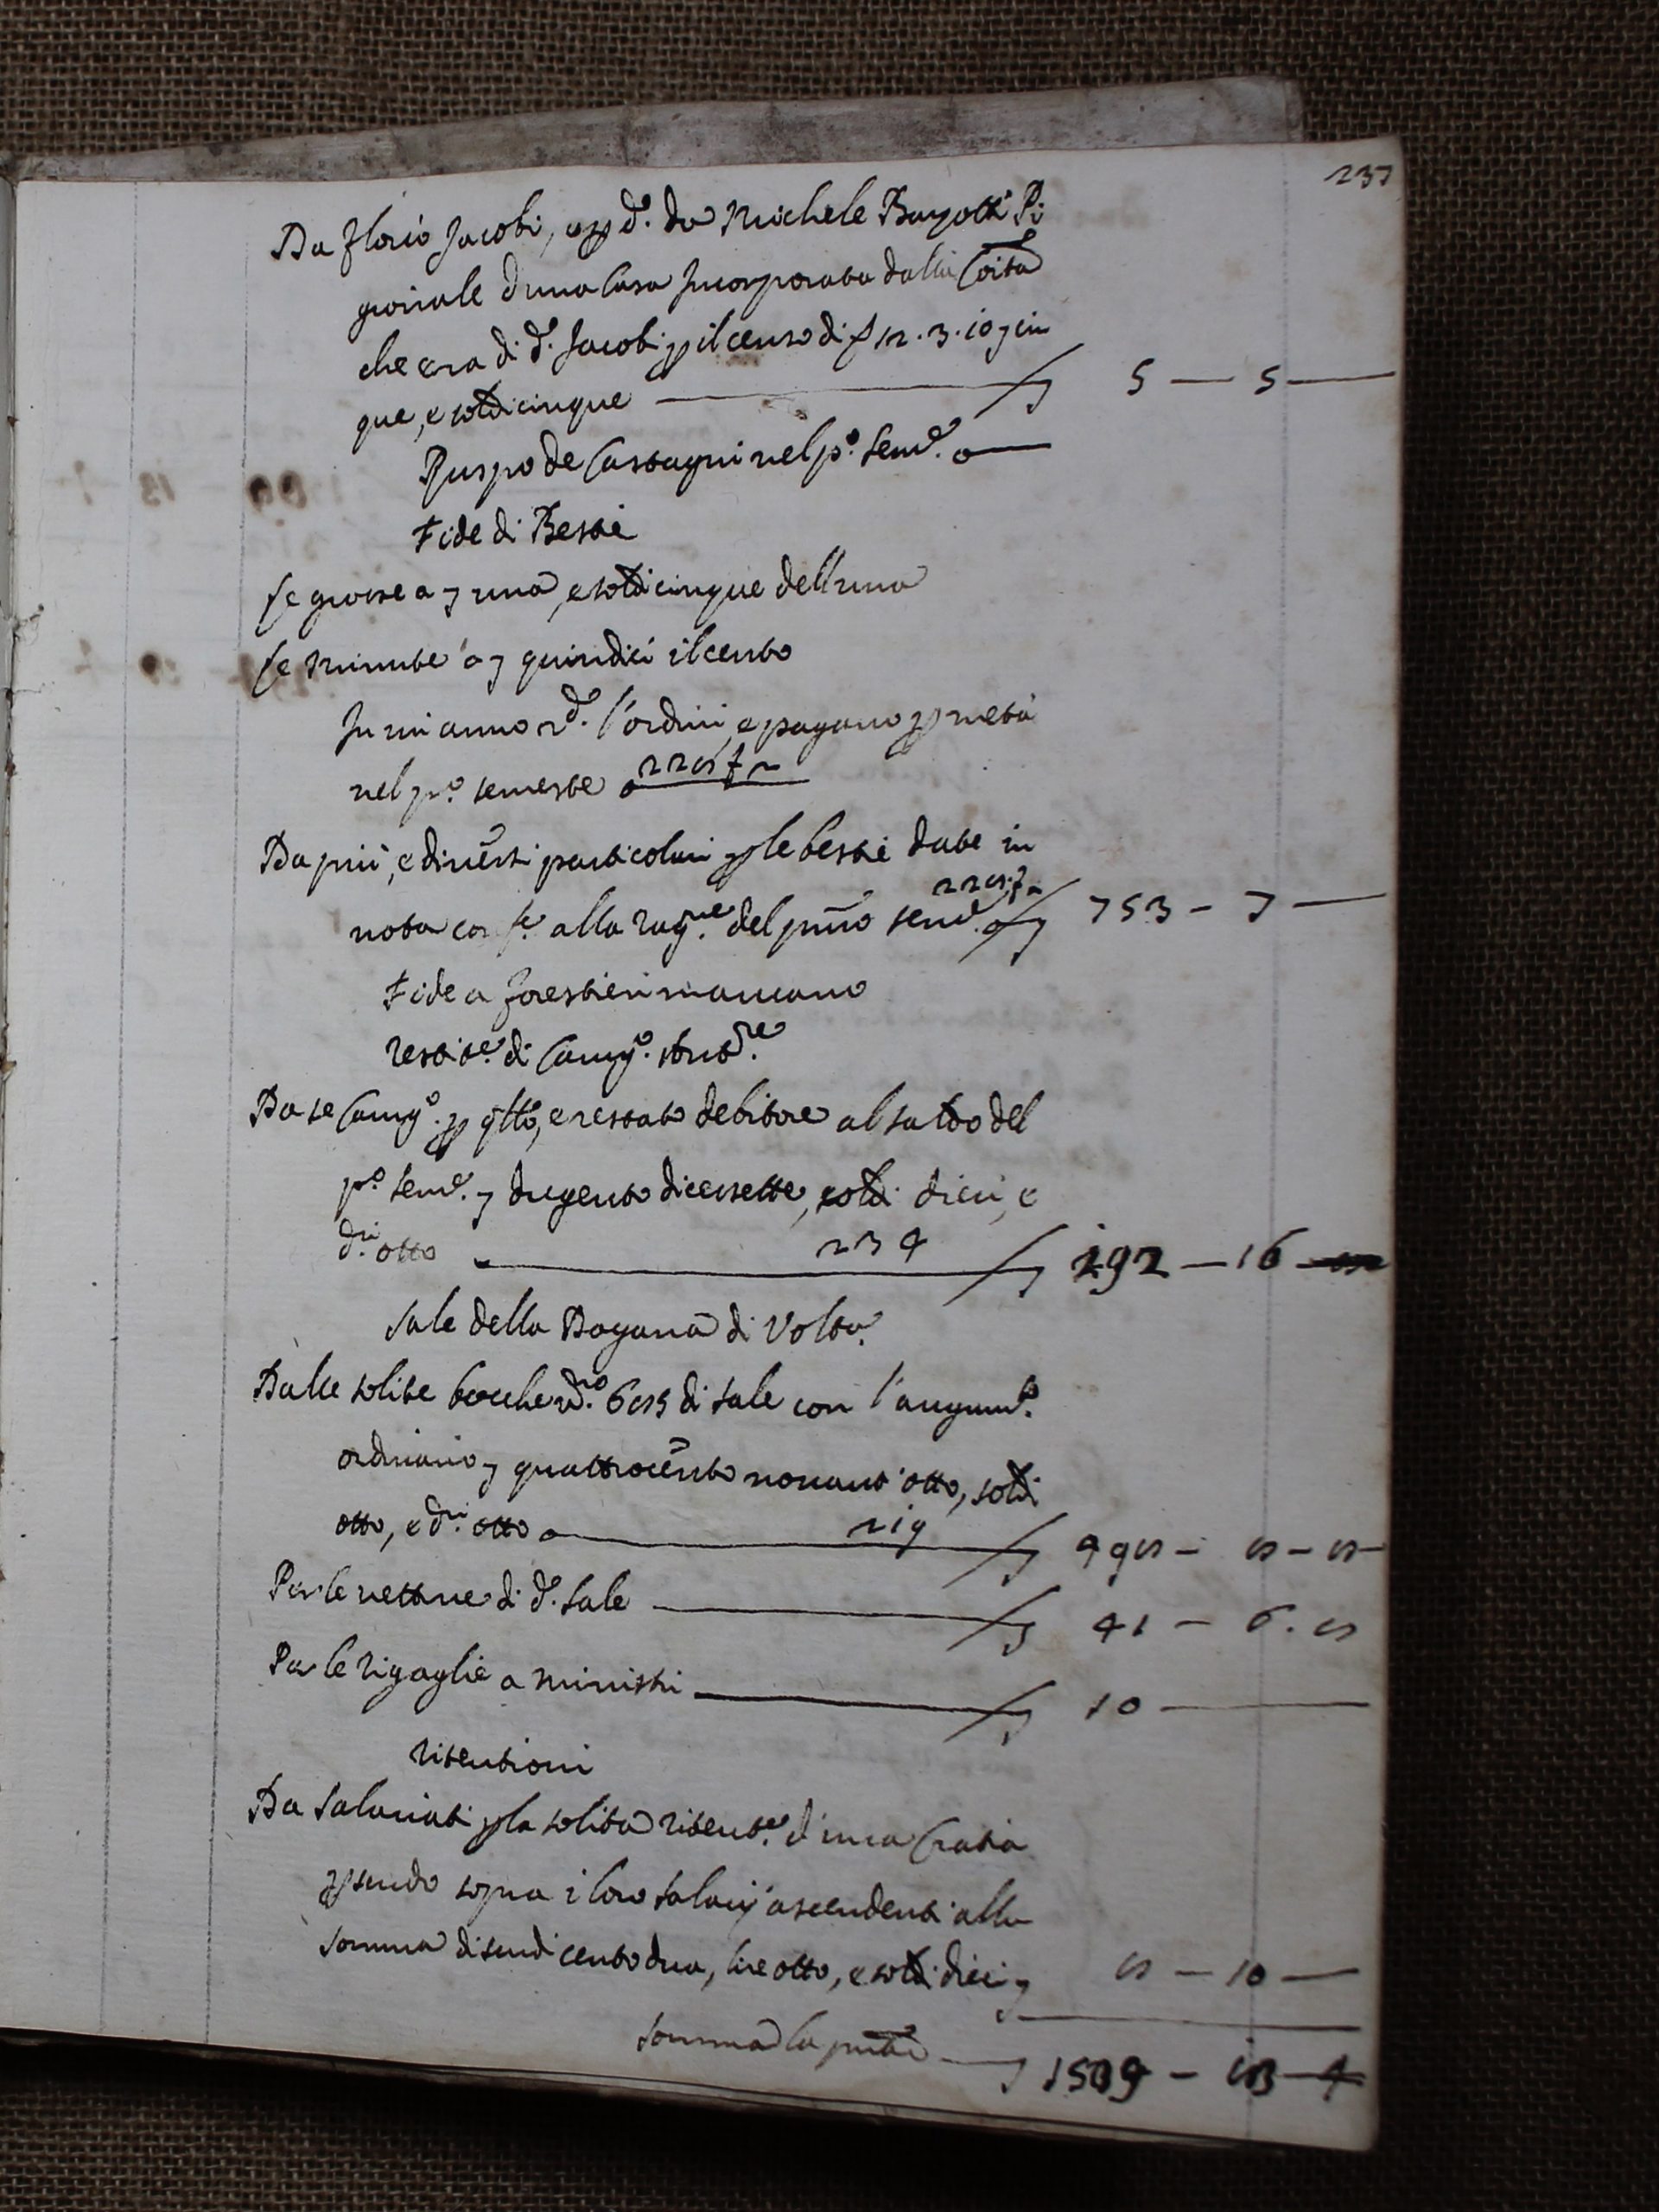 237
Da Florio Jacobi, e p d.º da Michele Bargotti Pi
gionale d'una Casa Incorporata dalla Coità
che era di d.º Jacobi p il censo di £ 12. 3. 10 £ cin
que, e soldi cinque ——— £ 5 — 5 —
Ruspo de Castagni nel p.º Sem.e o—
Fide di Bestie
Le grosse a £ una, e soldi cinque dell'una
Le Minute a £ quindici il cento
In un anno d.º l'ordini, e pagano p metà
nel p.º semestre
Da più, e diversi particolari p le bestie date in
nota alla rag.ne del pmo sem.e £ 753 — 7 —
Fide a forestieri mancano
restit.e di Camg.º
Da se Camg.º p q̃tto, e restato debitore al saldo del
p.º Sem.e £ dugento dicessette, soldi dieci, e
d.ri otto ——— 234 £ 292 — 16
Sale della Dogana di Volta.
Dalle solite bocche 68 di sale con l'augum.to
ordinario £ quattrocento novant'otto, soldi
otto, e d.ri otto ——— 219 £ 498 — 8 — 8
Per le vetture di d.º Sale ——— £ 41 — 6. 8
Per le rigaglie a Ministri ——— £ 10 —
ritentioni
Da Salariati p la solita ritent.e d'una Cratia
p scudo sopra i loro salarij ascendenti alla
somma di scudi cento dua, lire otto, e soldi dieci £ 8 — 10 —
Somma la pñte — £ 1509 — 13 — 4